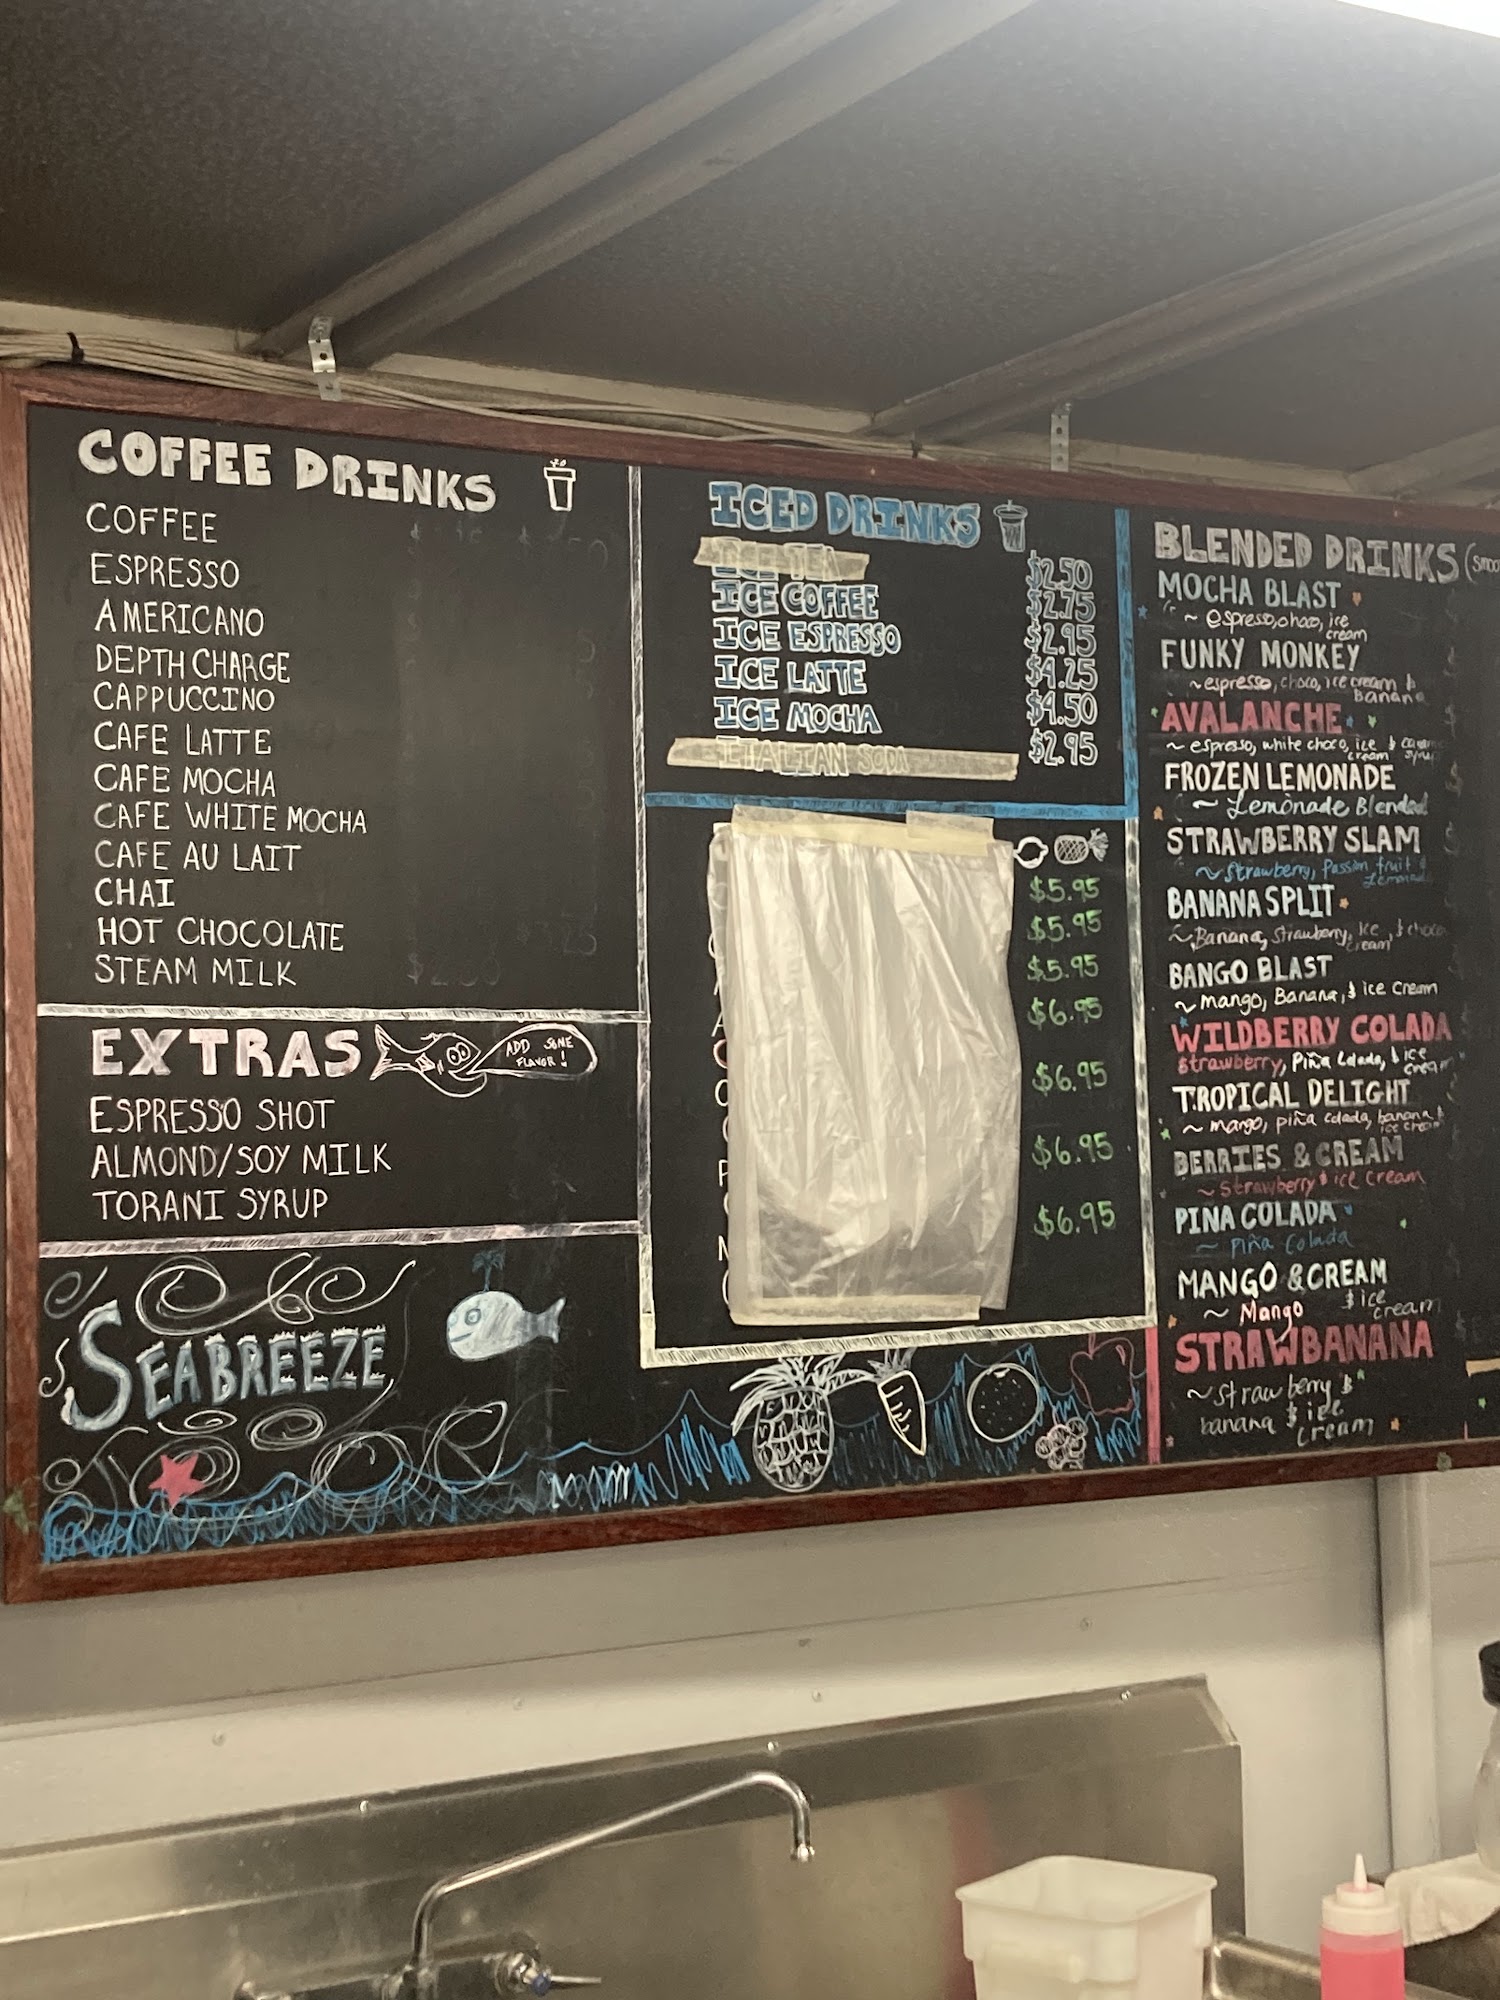 COFFEE DRINKS
COFFEE
ESPRESSO
AMERICANO
DEPTH CHARGE
CAPPUCCINO
CAFE LATTE
CAFE MOCHA
CAFE WHITE MOCHA
CAFE AU LAIT
CHAI
HOT CHOCOLATE
STEAM MILK
EXTRAS
ADD SOME
FLAVOR!
ESPRESSO SHOT
ALMOND/SOY MILK
TORANI SYRUP
SEABREEZE
ICED DRINKS
ICE TEA $2.50
ICE COFFEE $2.75
ICE ESPRESSO $2.95
ICE LATTE $4.25
ICE MOCHA $4.50
ITALIAN SODA $2.95
$5.95
$5.95
$5.95
$6.95
$6.95
$6.95
$6.95
BLENDED DRINKS
MOCHA BLAST
~ espresso, choco, ice
cream
FUNKY MONKEY
~espresso, choco, ice cream &
Banana
AVALANCHE
~ espresso, white choco, ice &
cream
FROZEN LEMONADE
~ Lemonade Blended
STRAWBERRY SLAM
~ Strawberry, Passion fruit &
Lemonade
BANANA SPLIT
~Banana, Strawberry, Ice , & choco
cream
BANGO BLAST
~ mango, Banana, & ice Cream
WILDBERRY COLADA
Strawberry, Piña Colada, & ice
cream
TROPICAL DELIGHT
~ mango, piña colada, banana &
ice cream
BERRIES & CREAM
~ Strawberry & ice cream
PINA COLADA
~ Piña Colada
MANGO & CREAM
~ Mango & ice
cream
STRAWBANANA
~ Strawberry &
banana & ice
cream